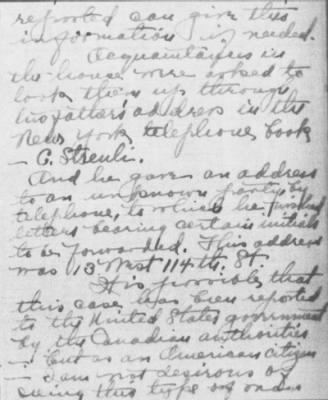 reported can give this
information if needed.
Acquaintances in
the house were asked to
look them up through
his father's address in the
New York telephone book
— C. Streuli.
And he gave an address
to an unknown party by
telephone, to which he
letters bearing certain initials
to be forwarded. This address
was 13 West 114th. St.
It is possible that
this case has been reported
to the United States government
by the Canadian authorities
— but as an American citizen
— I am not desirous of
seeing this type of